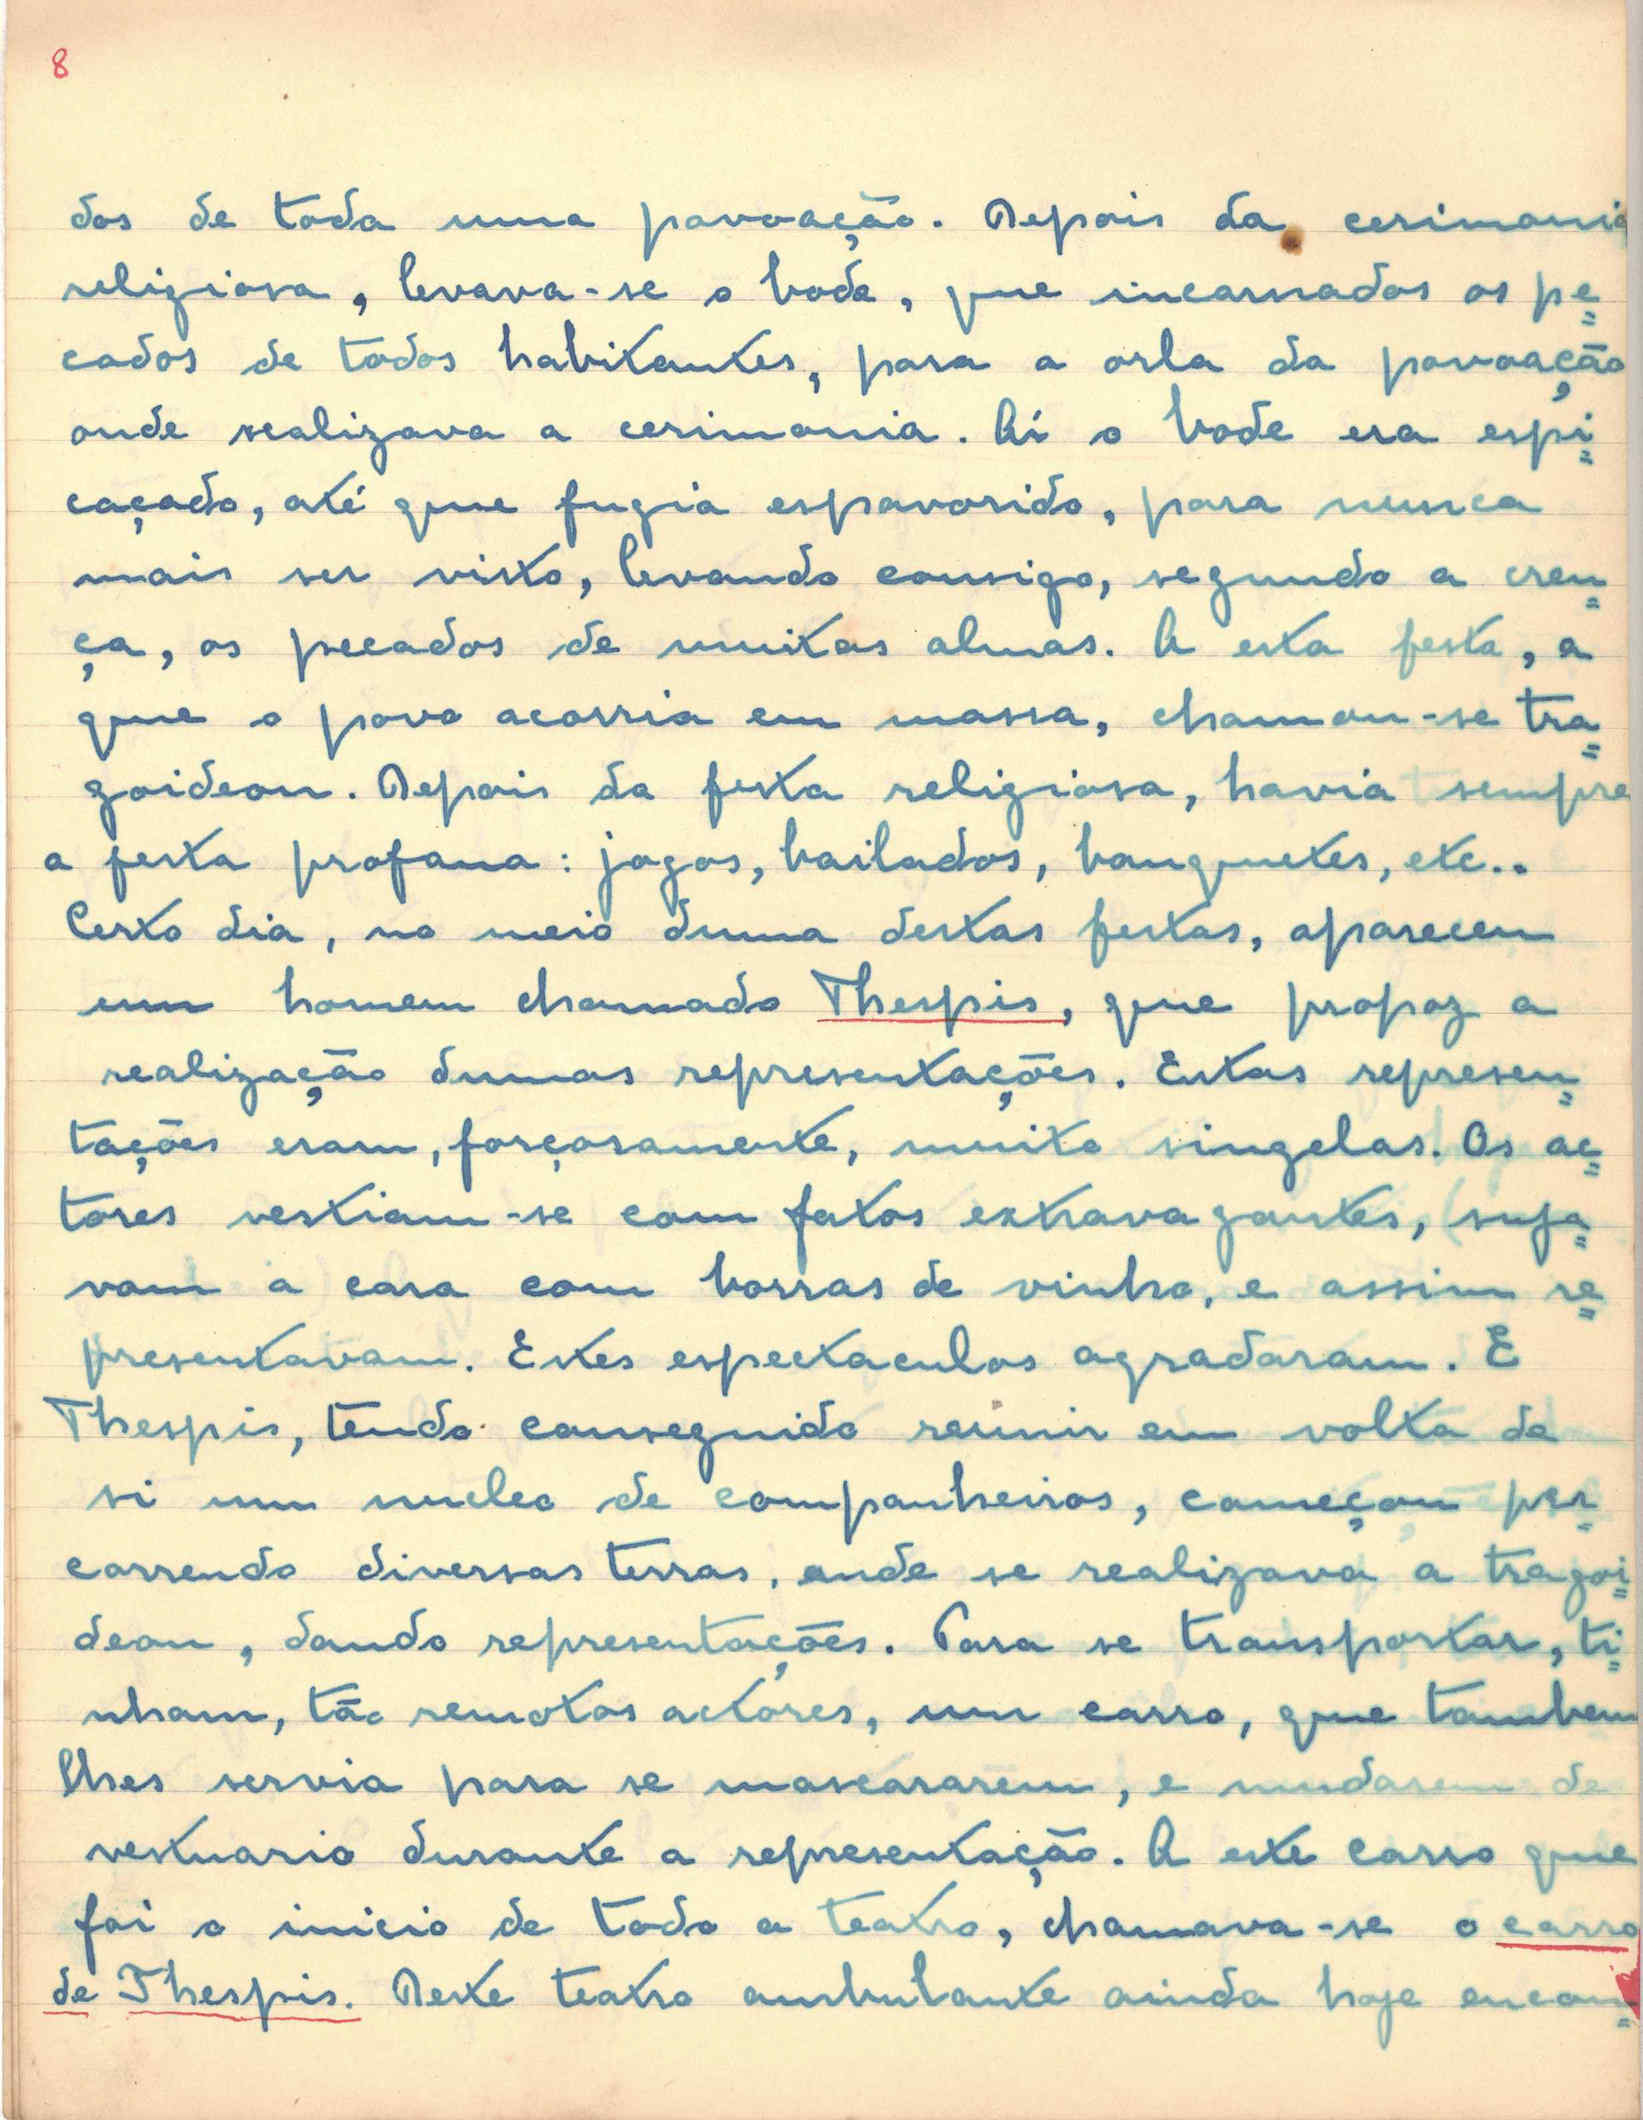 8
dos de toda uma povoação. Depois da cerimonia
religiosa, levava-se o bode, que incarnados os pe=
cados de todos habitantes, para a orla da povoação
onde realizava a cerimonia. Aí o bode era espi=
caçado, até que fugia espavorido, para nunca
mais ser visto, levando consigo, segundo a cren=
ça, os pecados de muitas almas. A esta festa, a
que o povo acorria em massa, chamou-se tra=
goideon. Depois da festa religiosa, havia sempre
a festa profana: jogos, bailados, banquetes, etc..
Certo dia, no meio duma destas festas, apareceu
um homem chamado Thespis, que propoz a
realização dumas representações. Estas represen=
tações eram, forçosamente, muito singelas. Os ac=
tores vestiam-se com fatos extravagantes, suja=
vam a cara com borras de vinho, e assim re=
presentavam. Estes espectaculos agradaram. E
Thespis, tendo conseguido reunir em volta de
si um nucleo de companheiros, começou per=
correndo diversas terras, onde se realizava a tragoi=
deon, dando representações. Para se transportar, ti=
nham, tão remotos actores, um carro, que tambem
lhes servia para se mascararem, e mudarem de
vestuario durante a representação. A este carro que
foi o inicio de todo o teatro, chamava-se o carro
de Thespis. Deste teatro ambulante ainda hoje encon=